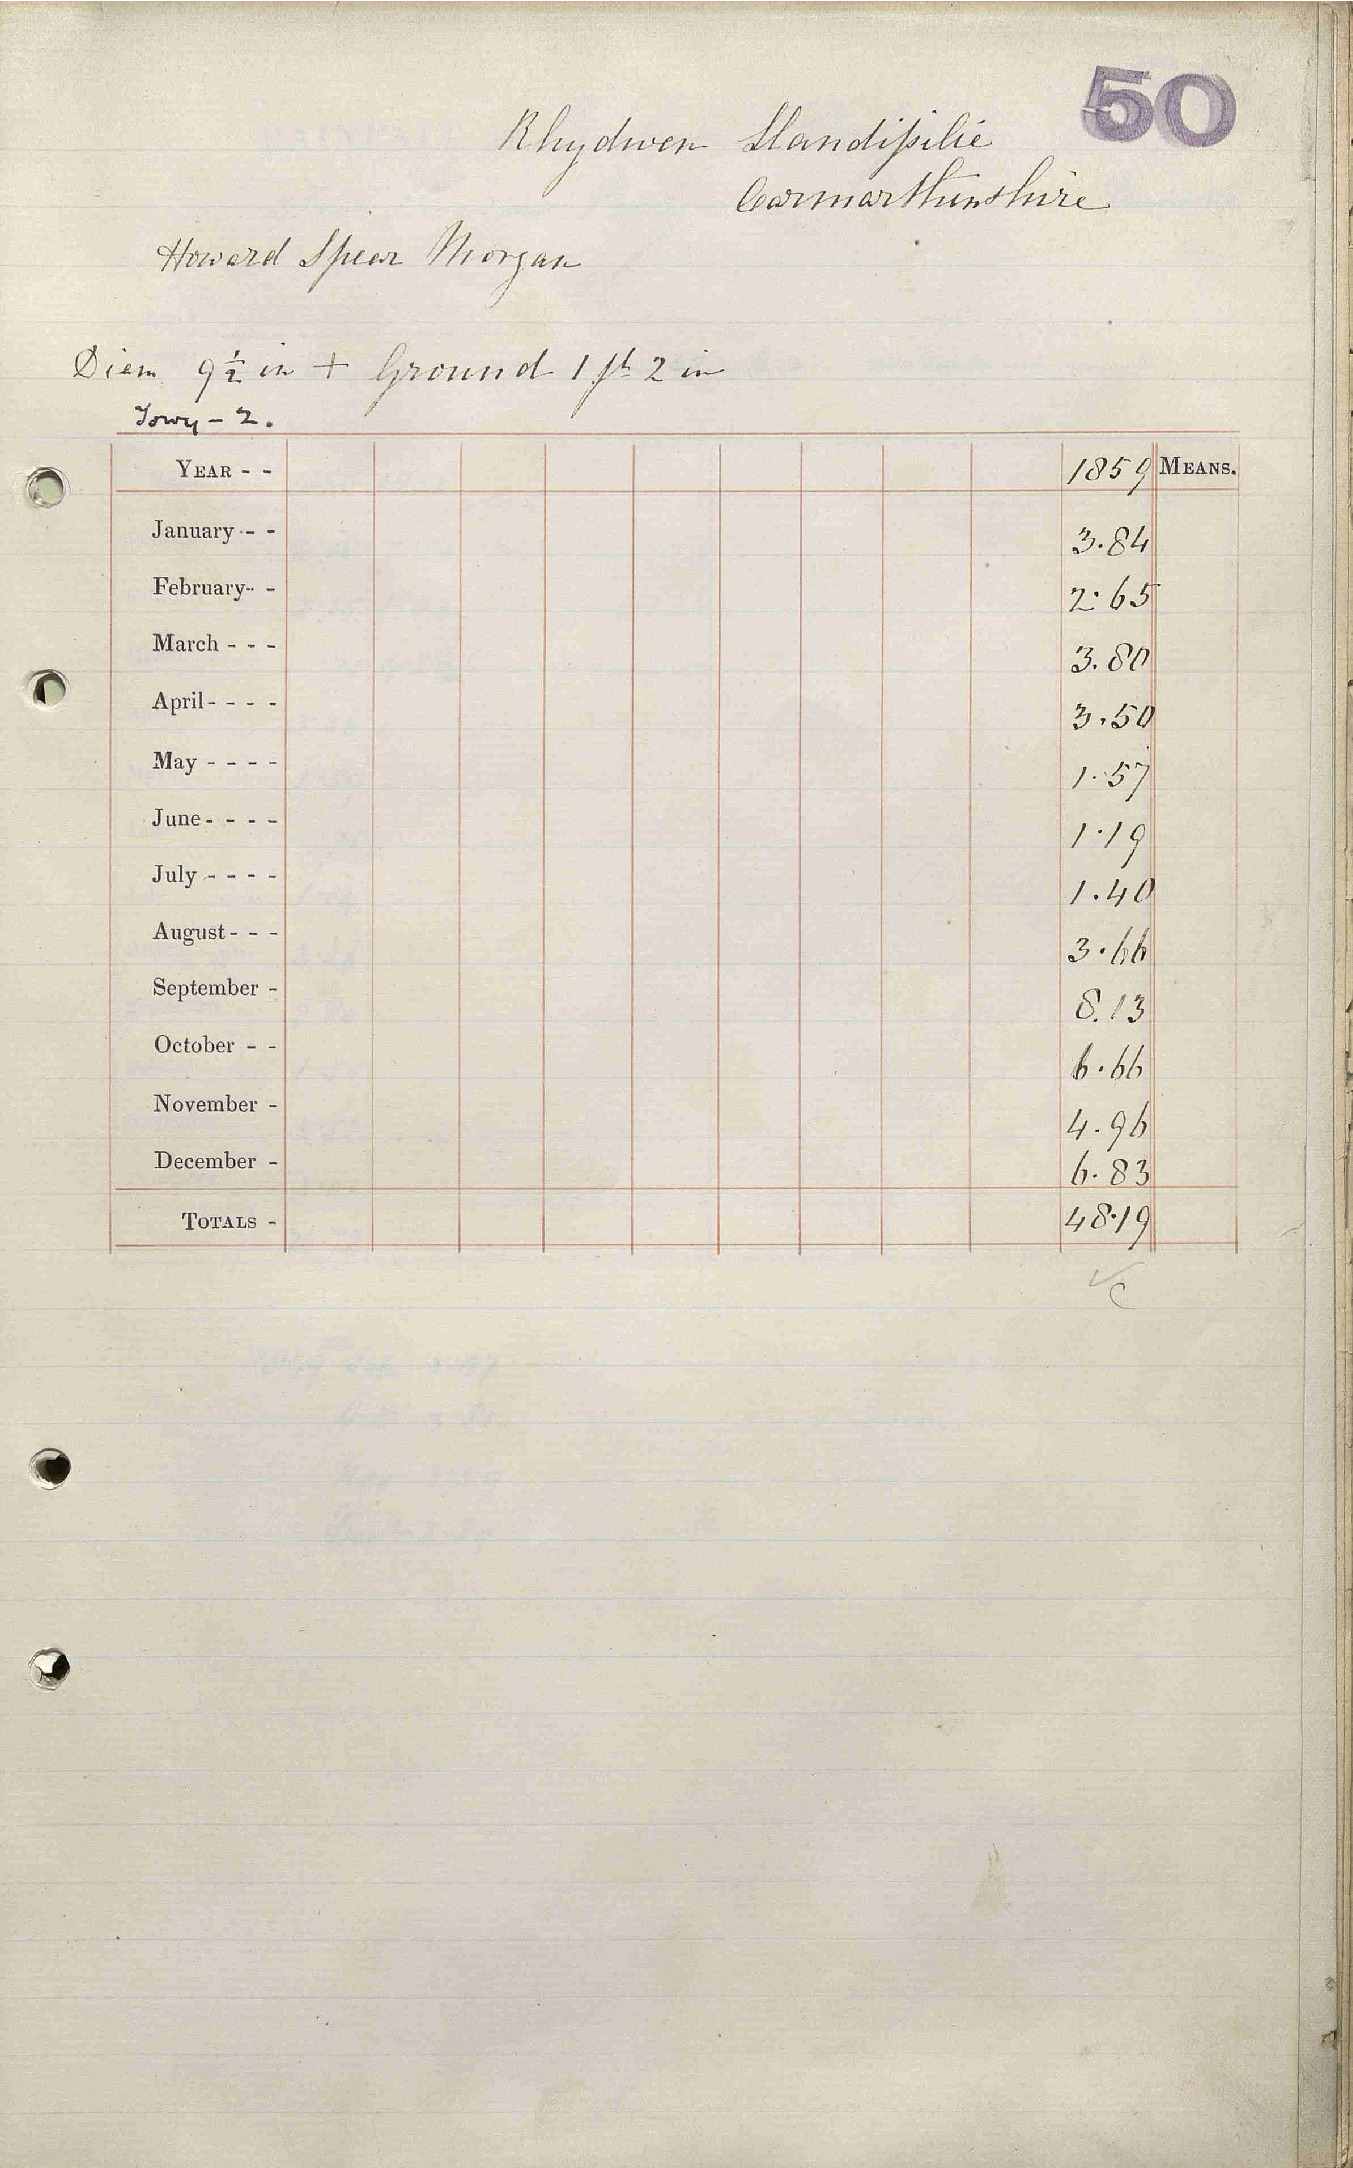 50
Rhydwen Llandipilie
Carmarthenshire
Howard Spear Morgan
Diam 9½ in + Ground 1 ft 2 in
Towy - 2.
YEAR - - 1859 MEANS.
January - - 3.84
February - - 2.65
March - - - 3.80
April - - - - 3.50
May - - - - 1.57
June - - - - 1.19
July - - - - 1.40
August - - - 3.66
September - 8.13
October - - 6.66
November - 4.96
December - 6.83
TOTALS - 48.19
✓C